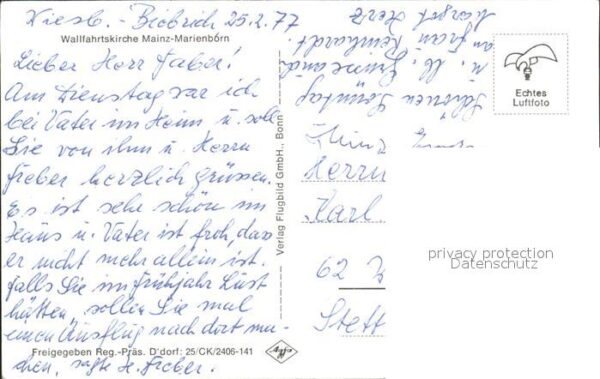 Wiesb. - Biebrich 25.2.77
Wallfahrtskirche Mainz-Marienborn
Lieber Herr Faber!
Am Dienstag war ich
bei Vater im Heim u. soll
Sie von ihm u. Herrn
Fieber herzlich grüssen.
Es ist sehr schön im
Haus u. Vater ist froh, dass
er nicht mehr allein ist.
Falls Sie im Frühjahr Lust
hätten, sollen Sie mal
einen Ausflug nach dort ma-
chen, sagte H. Fieber.
Freigegeben Reg.-Präs. D'dorf: 25/CK/2406-141
Verlag Flugbild GmbH., Bonn
Schönen Sonntag
u.
an Frau Reinhardt.
Margot Herz
Echtes
Luftfoto
Herrn
Karl
62 W
Stett
privacy protection
Datenschutz